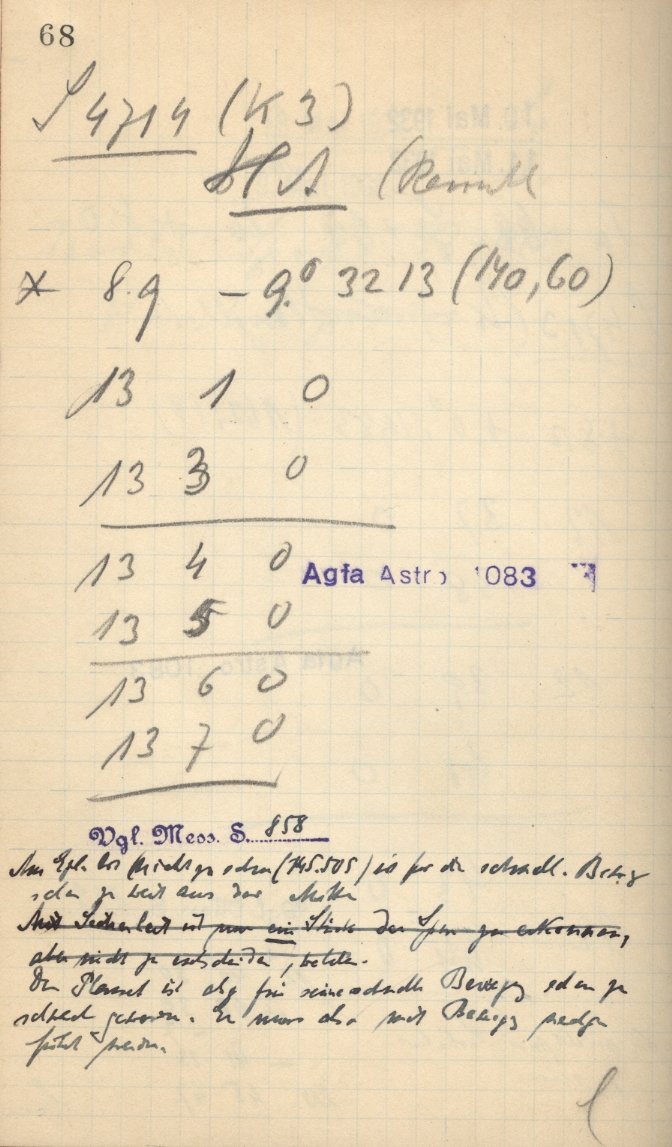 68
S 4714 (K 3)
A
8.9 – 9.0 32 13 (140,60)
13 1 0
13 3 0
13 4 0 Agfa Astro 1083
13 5 0
13 6 0
13 7 0
Vgl. Mess. S. 858
nichts zu sehen (745.505) ist für die schnell. Beweg
schon zu weit aus der Mitte
Mit Sicherheit ist nur ein Stück der Spur zu erkennen,
aber nicht zu entscheiden, welches.
Der Planet ist für seine schnelle Bewegg schon zu
schwach geworden. Er muss also mit Bewegg
werden.